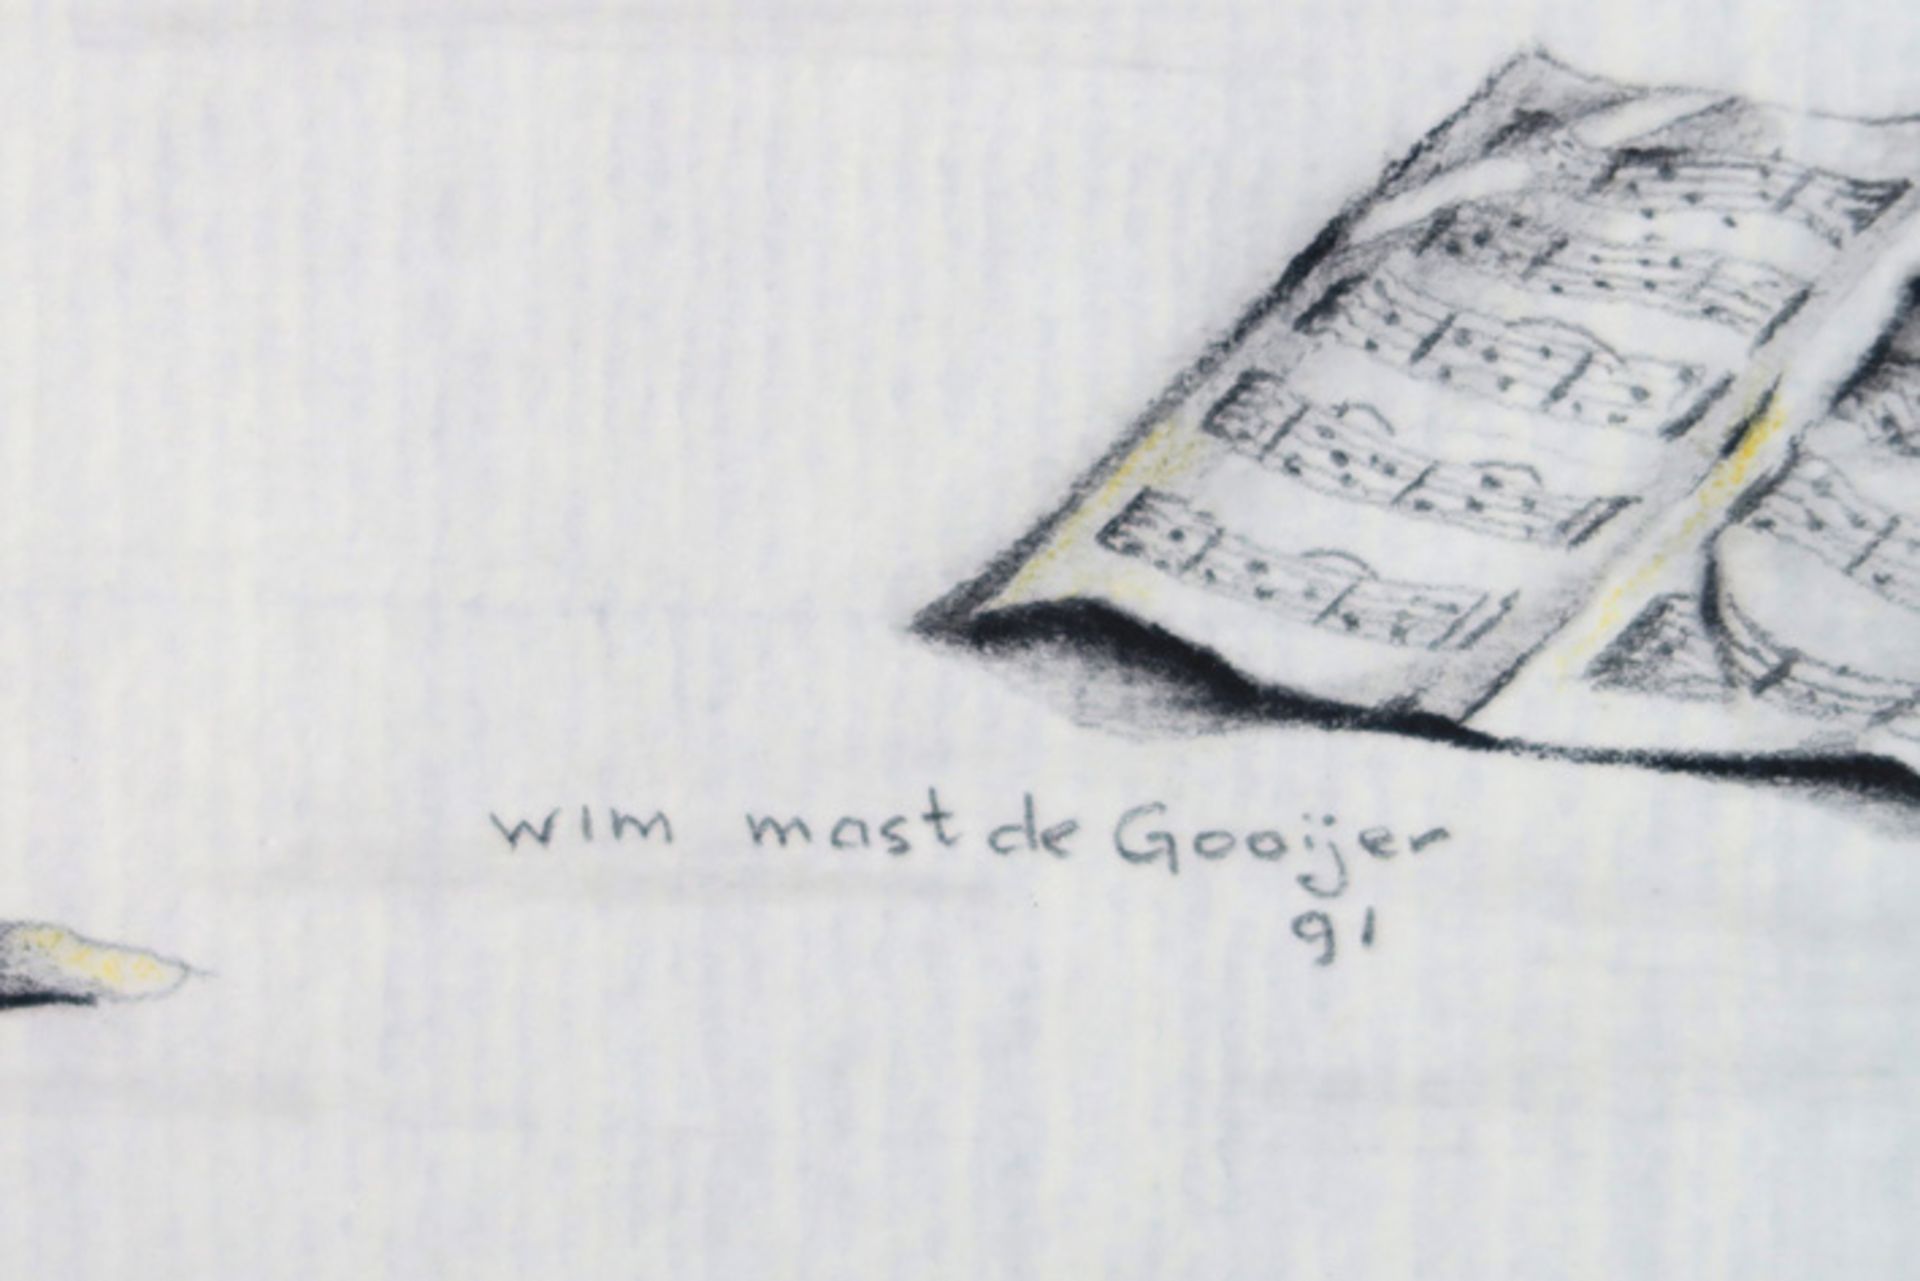 wim mast de Gooijer
91